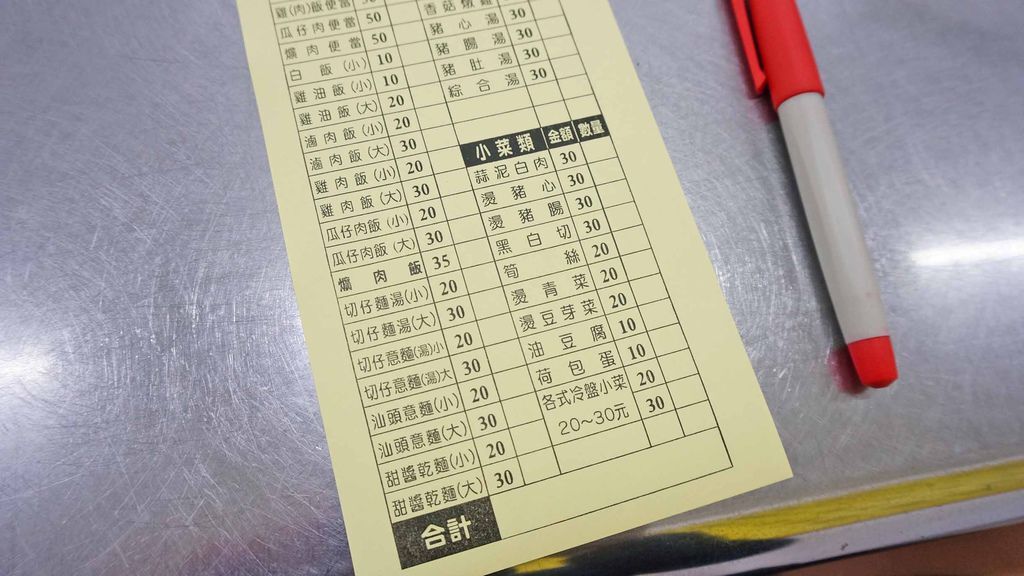 雞(肉)飯便當 50
瓜仔肉便當 50
爌肉便當 50
白飯(小) 10
雞油飯(小) 10
雞油飯(大) 20
滷肉飯(小) 20
滷肉飯(大) 30
雞肉飯(小) 20
雞肉飯(大) 30
瓜仔肉飯(小) 20
瓜仔肉飯(大) 30
爌肉飯 35
切仔麵湯(小) 20
切仔麵湯(大) 30
切仔意麵(湯)小 20
切仔意麵(湯)大 30
汕頭意麵(小) 20
汕頭意麵(大) 30
甜醬乾麵(小) 20
甜醬乾麵(大) 30
合計
香菇燉雞
豬心湯 30
豬腸湯 30
豬肚湯 30
綜合湯 30
小菜類 金額 數量
蒜泥白肉 30
燙豬心 30
燙豬腸 30
黑白切 30
筍絲 20
燙青菜 20
燙豆芽菜 20
油豆腐 10
荷包蛋 10
各式冷盤小菜 20
20~30元 30